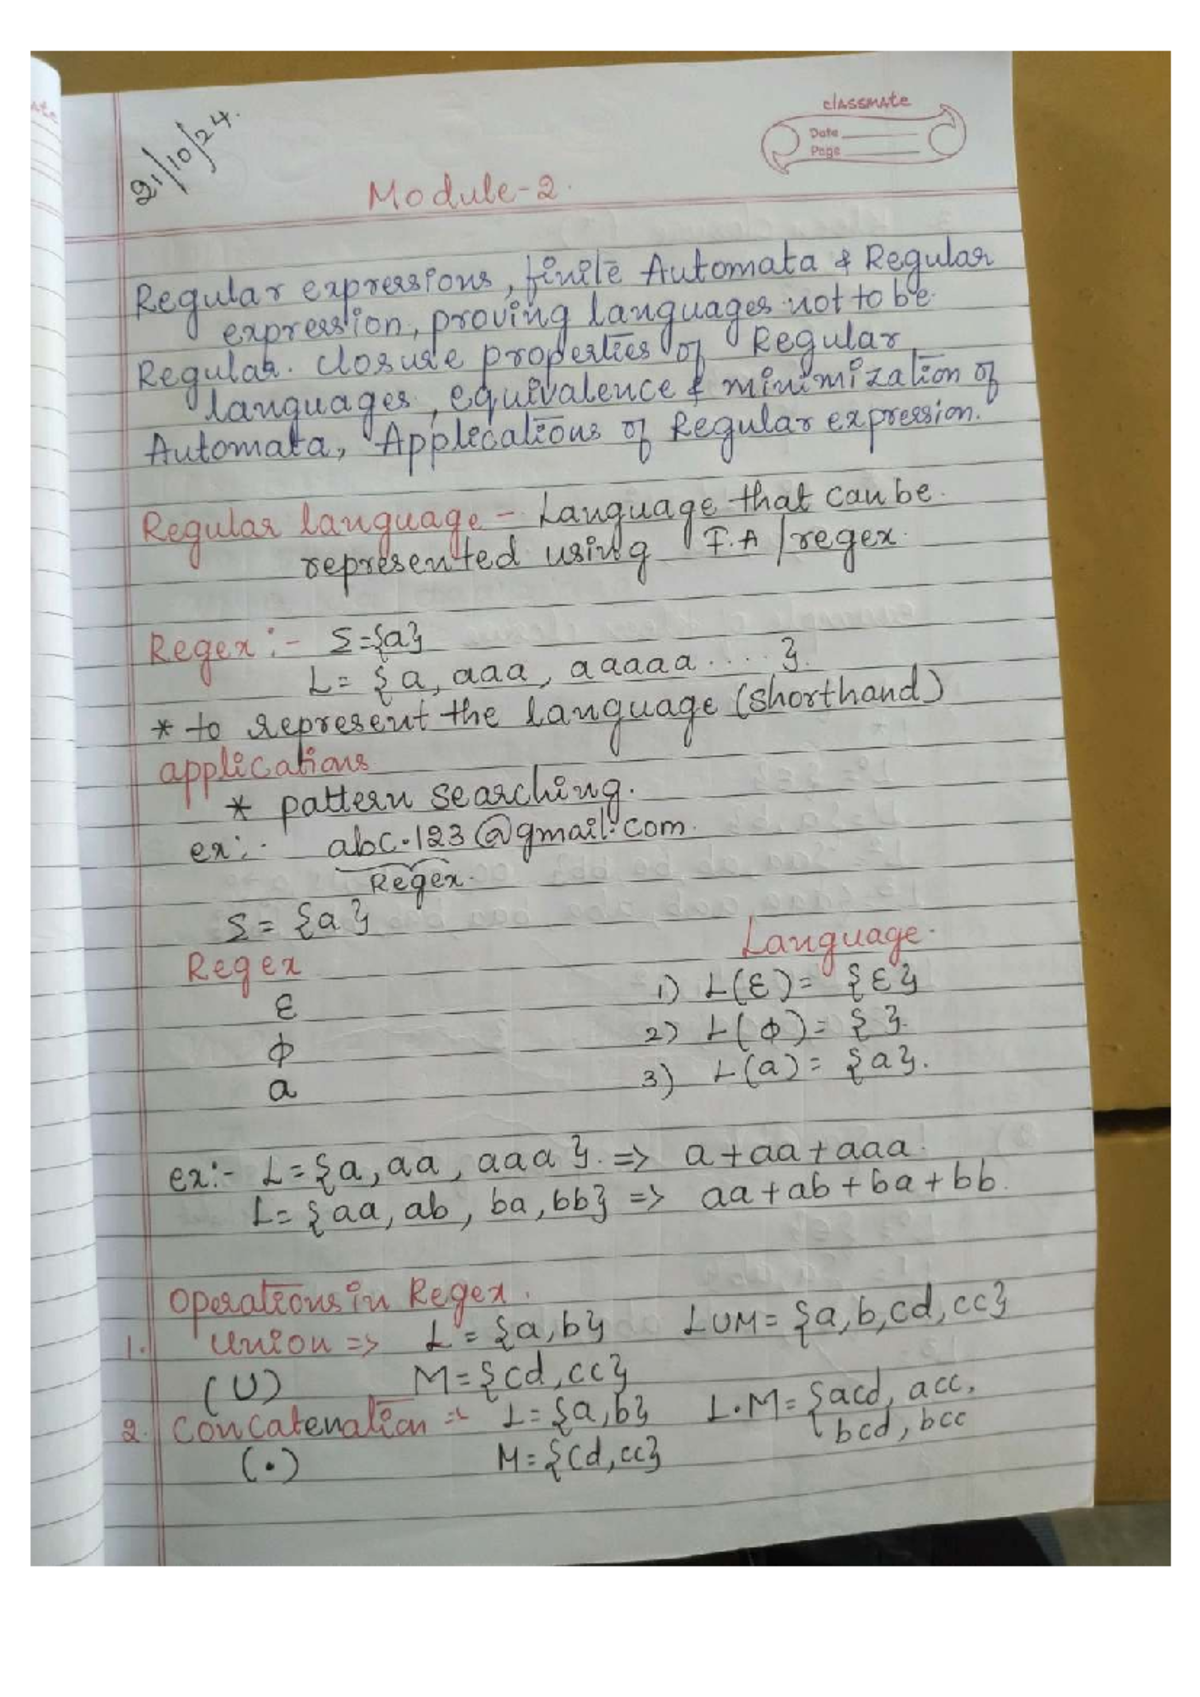 classmate
Date
Page
21/10/24.
Module-2.
Regular expressions, finite Automata & Regular
expression, proving languages not to be
Regular. closure properties of Regular
languages, equivalence & minimization of
Automata, Applications of Regular expression.
Regular language - Language that can be
represented using F.A / regex.
Regex :- Σ={a}
L= {a, aaa, aaaaa....}.
* to represent the language (shorthand)
applications
* pattern searching.
ex:- abc.123@gmail.com.
Regex.
Σ = {a}
Regex Language.
ε 1) L(ε) = {ε}
ϕ 2) L(ϕ) = { }.
a 3) L(a) = {a}.
ex:- L={a, aa, aaa}. => a+aa+aaa.
L={aa, ab, ba, bb} => aa+ab+ba+bb.
Operations in Regex.
1. Union => L = {a,b} LUM = {a,b,cd,cc}
(U) M={cd,cc}
2. Concatenation => L={a,b} L.M={acd, acc,
bcd, bcc
(.) M={cd,cc}